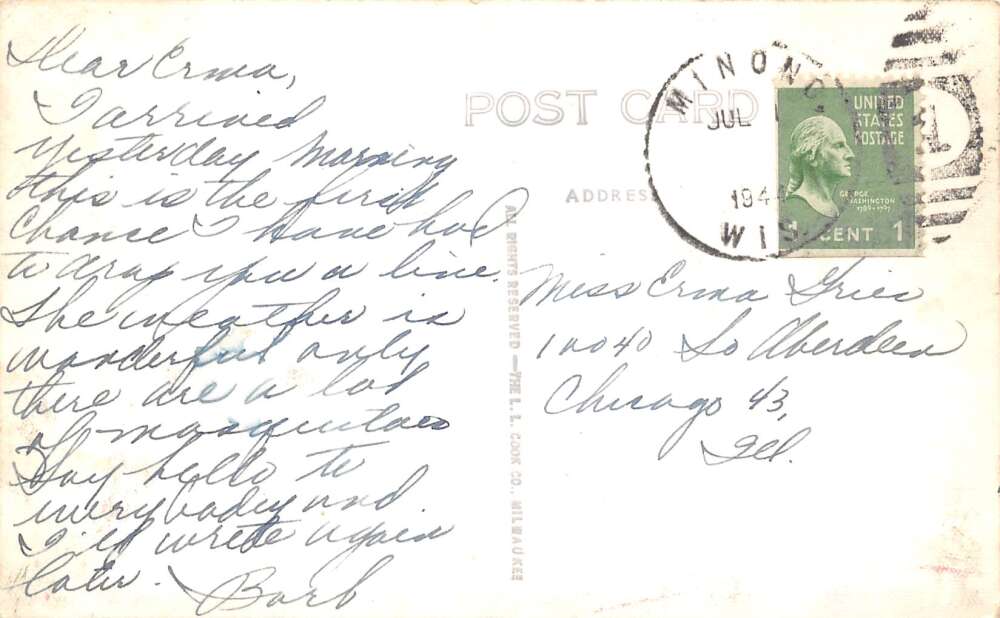 Dear Erma,
I arrived
yesterday morning
this is the first
chance I have had
to drop you a line.
The weather is
wonderful only
there are a lot
of mosquitoes
Say hello to
everybody and
I'll write again
later. Barb
POST CARD
ADDRESS
ALL RIGHTS RESERVED—THE L. L. COOK CO., MILWAUKEE
MINONG,
JUL
194
WIS.
UNITED
STATES
POSTAGE
GEORGE
WASHINGTON
1789-1797
1 CENT 1
Miss Erma Gries
10040 So Aberdeen
Chicago 43,
Ill.